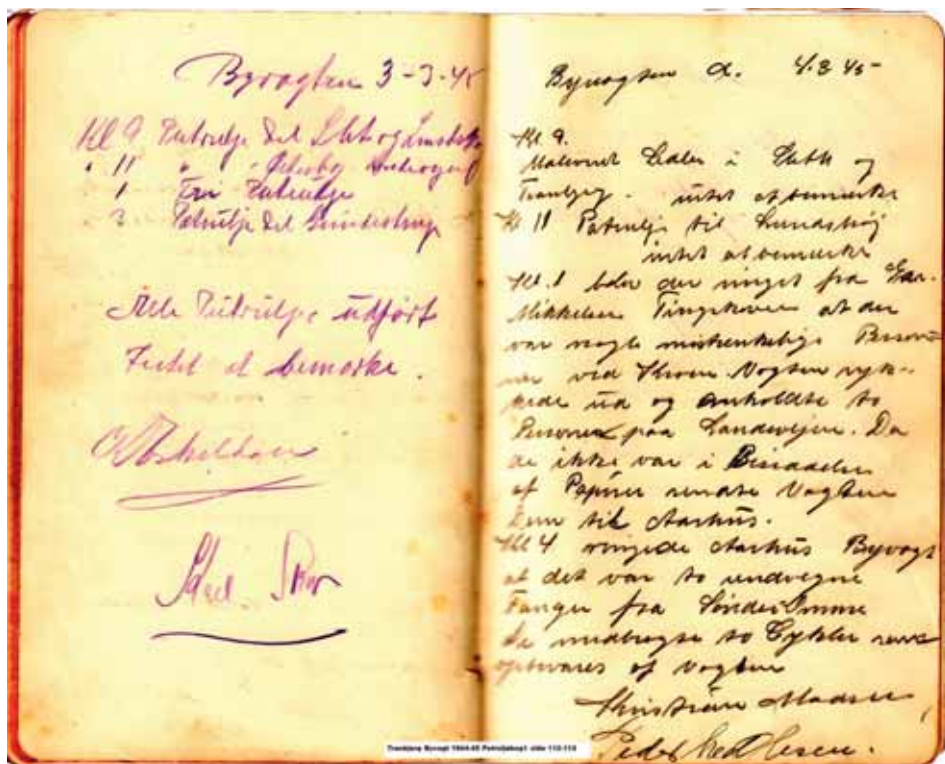 Byvagten 3-3-45
Kl 9 Patrulje Del Slet og
" 11 " "
" 1 Fri Patrulje
" 3 Patrulje Del
Alle Patrulje udført
Intet at bemærke.
Byvagten d. 4.3 45
Kl. 9.
i Slet og
Tranbjerg. intet at bemærke
Kl 11 Patrulje til
intet at bemærke
Kl. 1 blev der ringet fra
Mikkelsen Tingskoven at der
var nogle mistænkelige Perso-
ner ved Kroen. Vagten ryk-
kede ud og anholdte to
Personer paa Landevejen. Da
de ikke var i Besiddelse
af Papirer sendte Vagten
Dem til Aarhus.
Kl 4 ringede Aarhus Byvagt
at det var to undvegne
Fanger fra Sønder Omme
De medbragte to Cykler som
opbevares af Vagten
Kristian Madsen
Peder
Tranbjerg Byvagt 1944-45 Patruljebog1 side 112-113